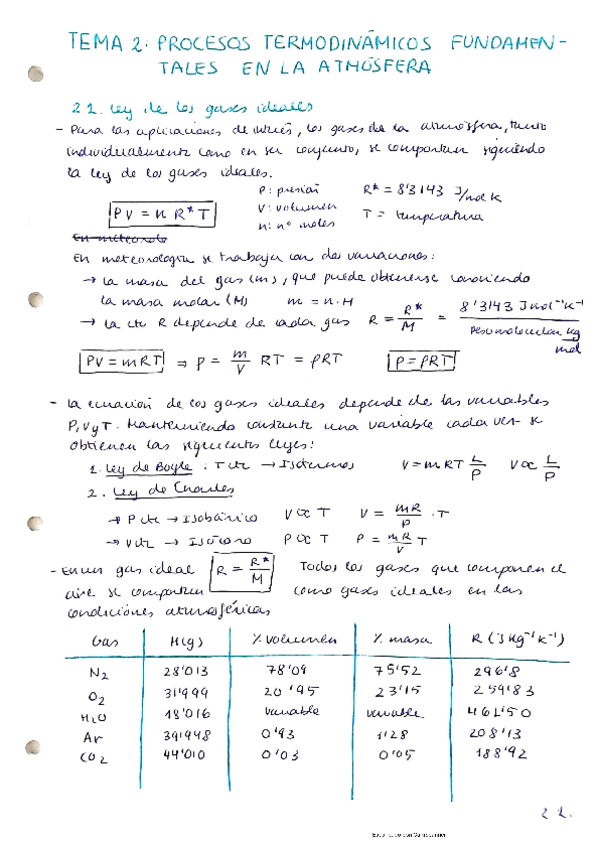 TEMA 2: PROCESOS TERMODINÁMICOS FUNDAMEN-
TALES EN LA ATMÓSFERA
2.1. Ley de los gases ideales
- Para las aplicaciones de interés, los gases de la atmósfera, tanto
individualmente como en su conjunto, se comportan siguiendo
la ley de los gases ideales.
PV = n R* T
P: presión
V: volumen
n: nº moles
R* = 8'3143 J/mol K
T = temperatura
En meteorolo
En meteorología se trabaja con dos variaciones:
→ La masa del gas (m), que puede obtenerse conociendo
la masa molar (M) m = n · M
→ La cte R depende de cada gas R = R*/M = 8'3143 J mol⁻¹ K⁻¹ / Peso molecular kg/mol
PV = mRT ⇒ P = m/V RT = ρRT P = ρRT
- La ecuación de los gases ideales depende de las variables
P, V y T. Manteniendo constante una variable cada vez se
obtienen las siguientes leyes:
1. Ley de Boyle: T cte → Isotermos V = mRT 1/P V ∝ 1/P
2. Ley de Charles
→ P cte → Isobárico V ∝ T V = mR/P · T
→ V cte → Isócoro P ∝ T P = mR/V T
- En un gas ideal R = R*/M Todos los gases que componen el
aire se comportan como gases ideales en las
condiciones atmosféricas
Gas M(g) % volumen % masa R (J Kg⁻¹ K⁻¹)
N₂ 28'013 78'09 75'52 296'8
O₂ 31'999 20'95 23'15 259'83
H₂O 18'016 variable variable 461'50
Ar 39'948 0'93 1'28 208'13
CO₂ 44'010 0'03 0'05 188'92
2.1.